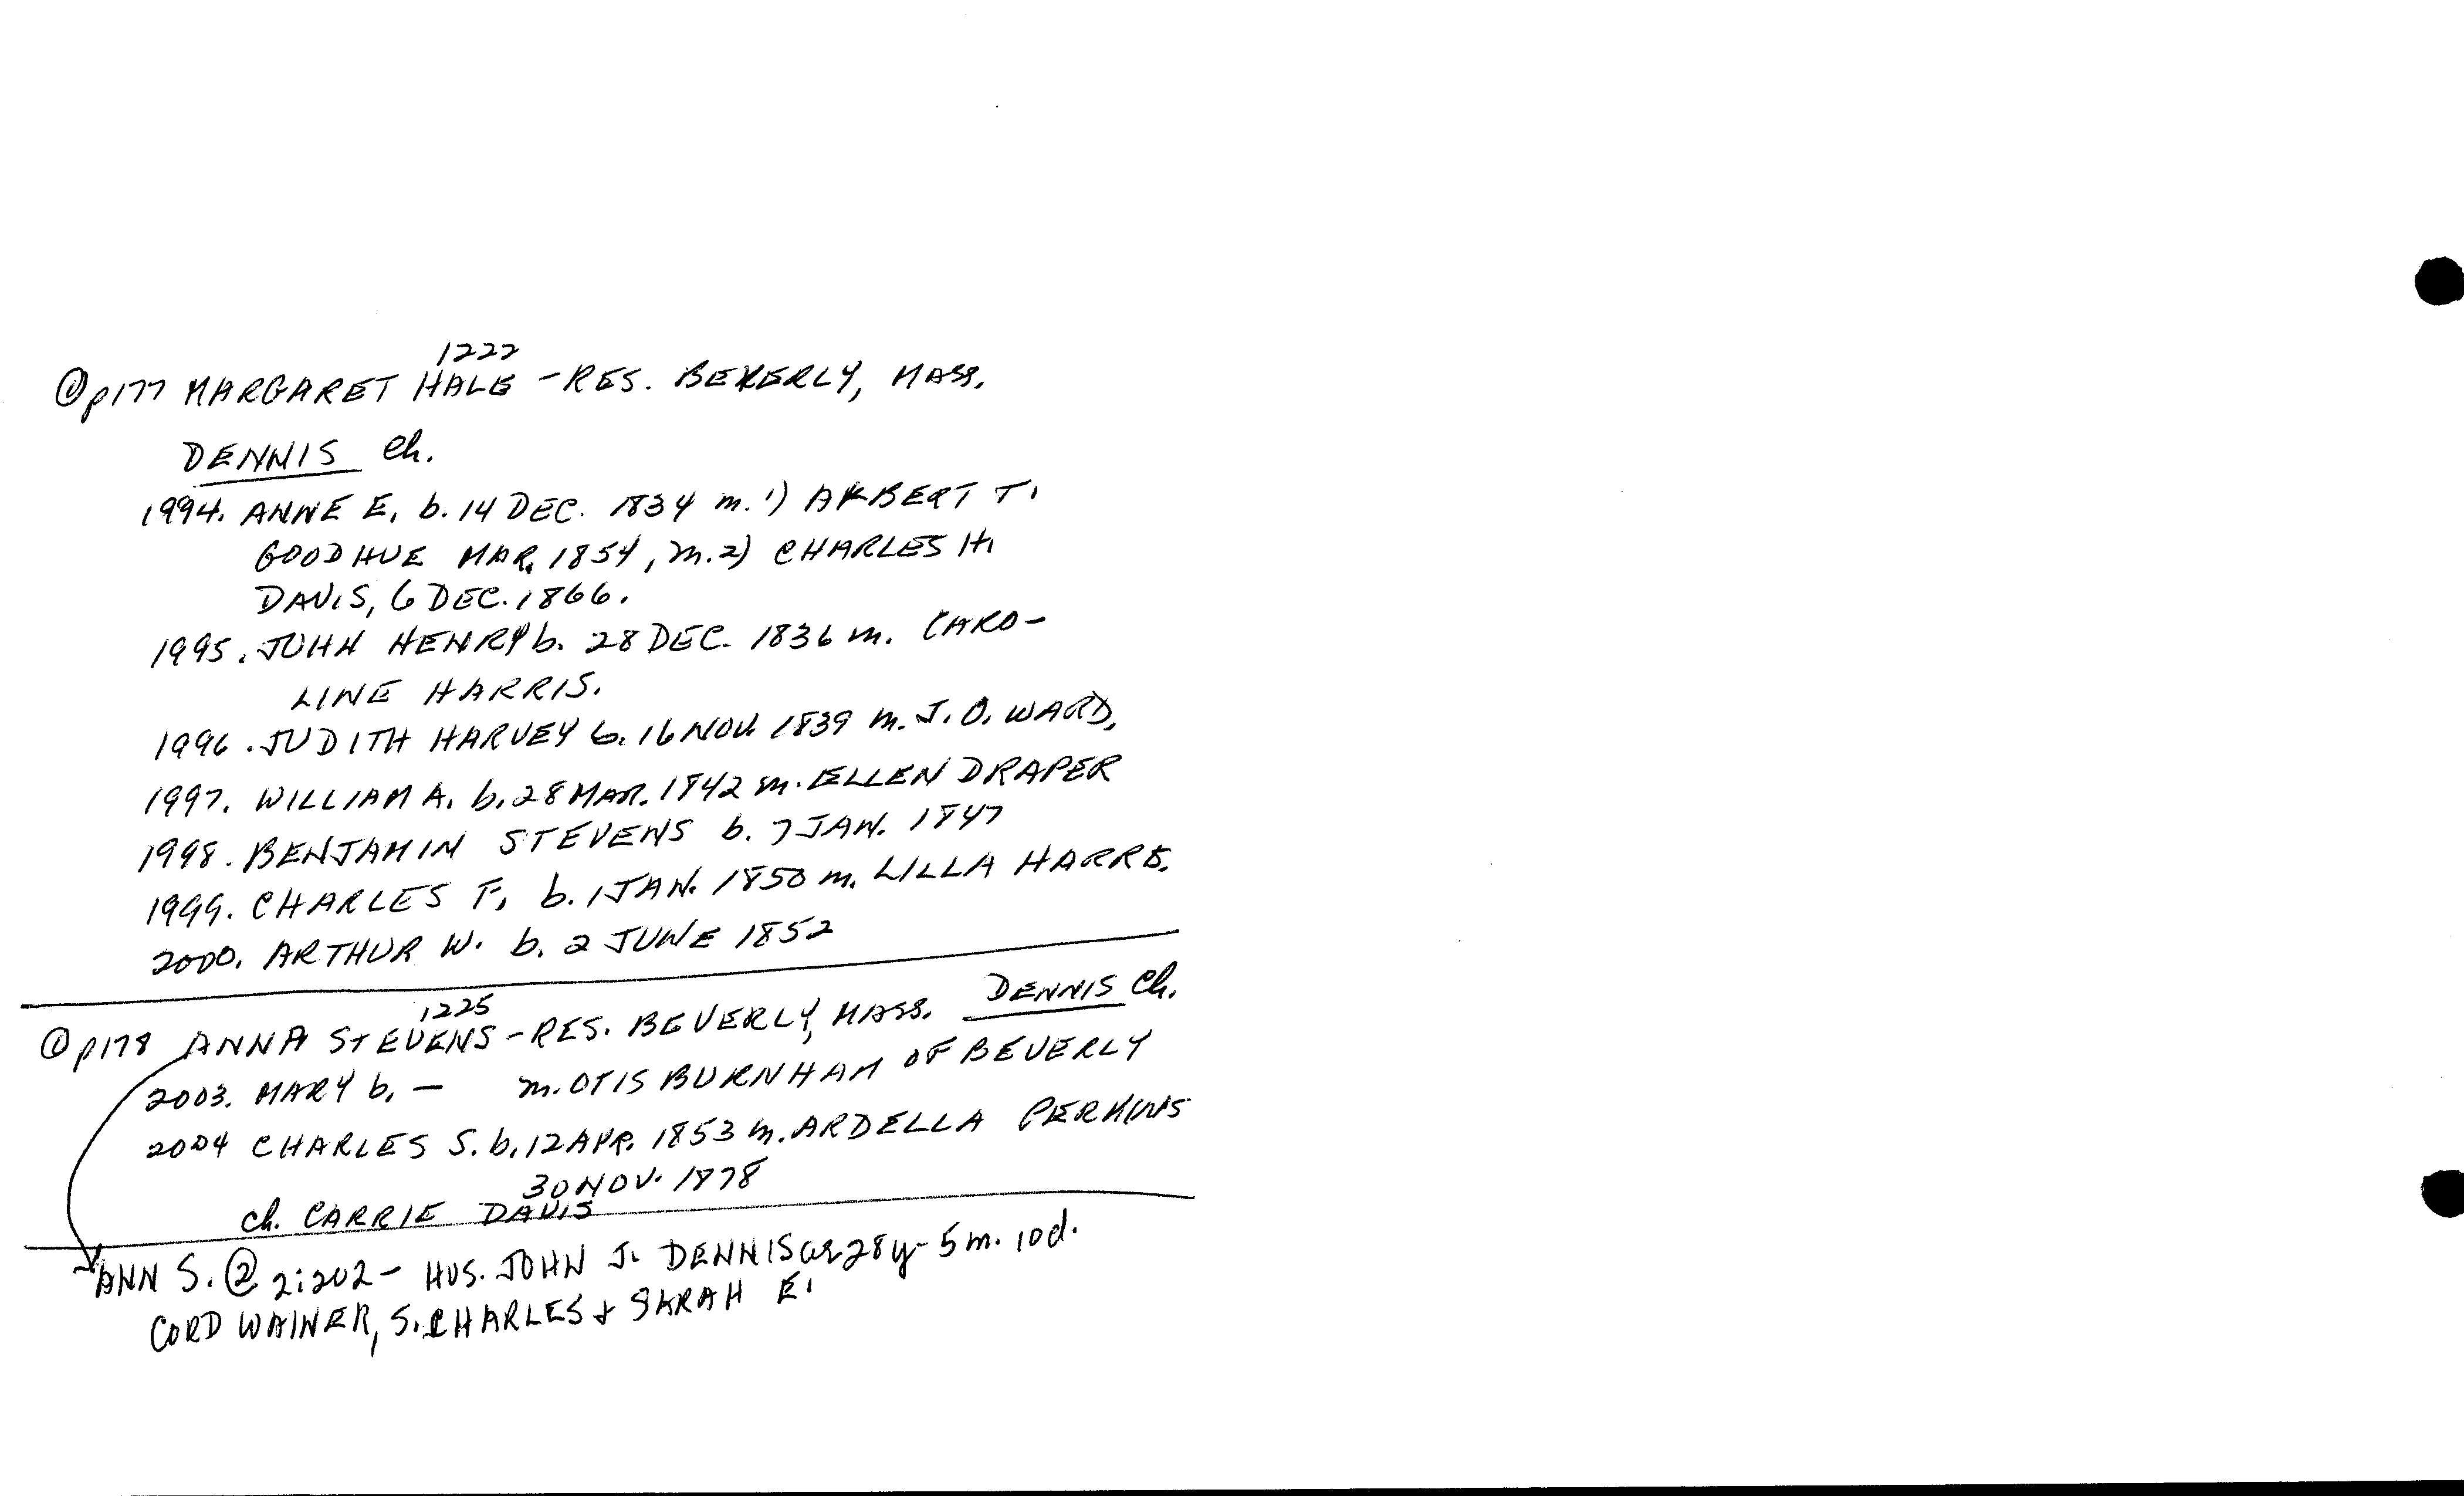 1222
① p177 MARGARET HALE - RES. BEVERLY, MASS.
DENNIS Ch.
1994. ANNE E. b. 14 DEC. 1834 m. 1) ALBERT T.
GOODHUE MAR. 1854, m. 2) CHARLES H.
DAVIS, 6 DEC. 1866.
1995. JOHN HENRY b. 28 DEC. 1836 m. CARO-
LINE HARRIS.
1996. JUDITH HARVEY b. 16 NOV. 1839 m. J. O. WARD.
1997. WILLIAM A. b. 28 MAR. 1842 m. ELLEN DRAPER
1998. BENJAMIN STEVENS b. 7 JAN. 1847
1999. CHARLES F. b. 1 JAN. 1850 m. LILLA
2000. ARTHUR W. b. 2 JUNE 1852
1225
① p178 ANNA STEVENS - RES. BEVERLY, MASS. DENNIS Ch.
2003. MARY b. — m. OTIS BURNHAM OF BEVERLY
2004 CHARLES S. b. 12 APR. 1853 m. ARDELLA PERKINS
30 NOV. 1878
Ch. CARRIE DAVIS
ANN S. ② 2:202 - HUS. JOHN J. DENNIS ae 28y - 5m. 10d.
CORDWAINER, S. CHARLES + SARAH E.